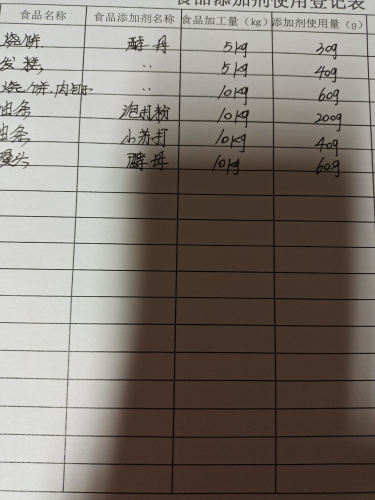 食品添加剂使用登记表
食品名称 食品添加剂名称 食品加工量（kg） 添加剂使用量（g）
烧饼 酵母 5kg 30g
发糕 〃 5kg 40g
烧饼、肉 〃 10kg 60g
油条 泡打粉 10kg 200g
油条 小苏打 10kg 40g
馒头 酵母 10kg 60g